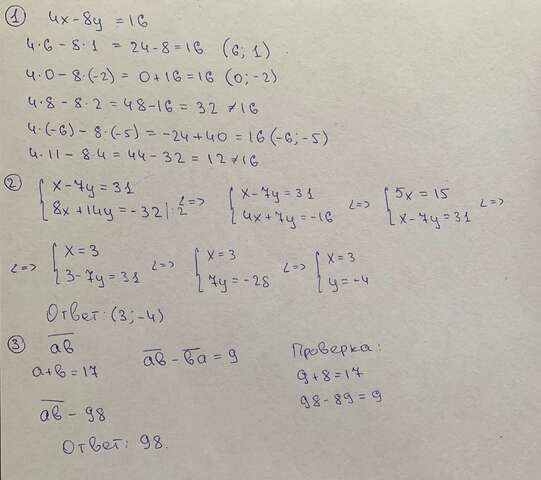 ① 4x - 8y = 16
4·6 - 8·1 = 24 - 8 = 16 (6; 1)
4·0 - 8·(-2) = 0 + 16 = 16 (0; -2)
4·8 - 8·2 = 48 - 16 = 32 ≠ 16
4·(-6) - 8·(-5) = -24 + 40 = 16 (-6; -5)
4·11 - 8·4 = 44 - 32 = 12 ≠ 16
② { x - 7y = 31 8x + 14y = -32 |:2 <=> { x - 7y = 31 4x + 7y = -16 <=> { 5x = 15 x - 7y = 31 <=>
<=> { x = 3 3 - 7y = 31 <=> { x = 3 7y = -28 <=> { x = 3 y = -4
Ответ: (3; -4)
③ ab
a + b = 17 ab - ba = 9
ab - 98
Ответ: 98.
Проверка:
9 + 8 = 17
98 - 89 = 9